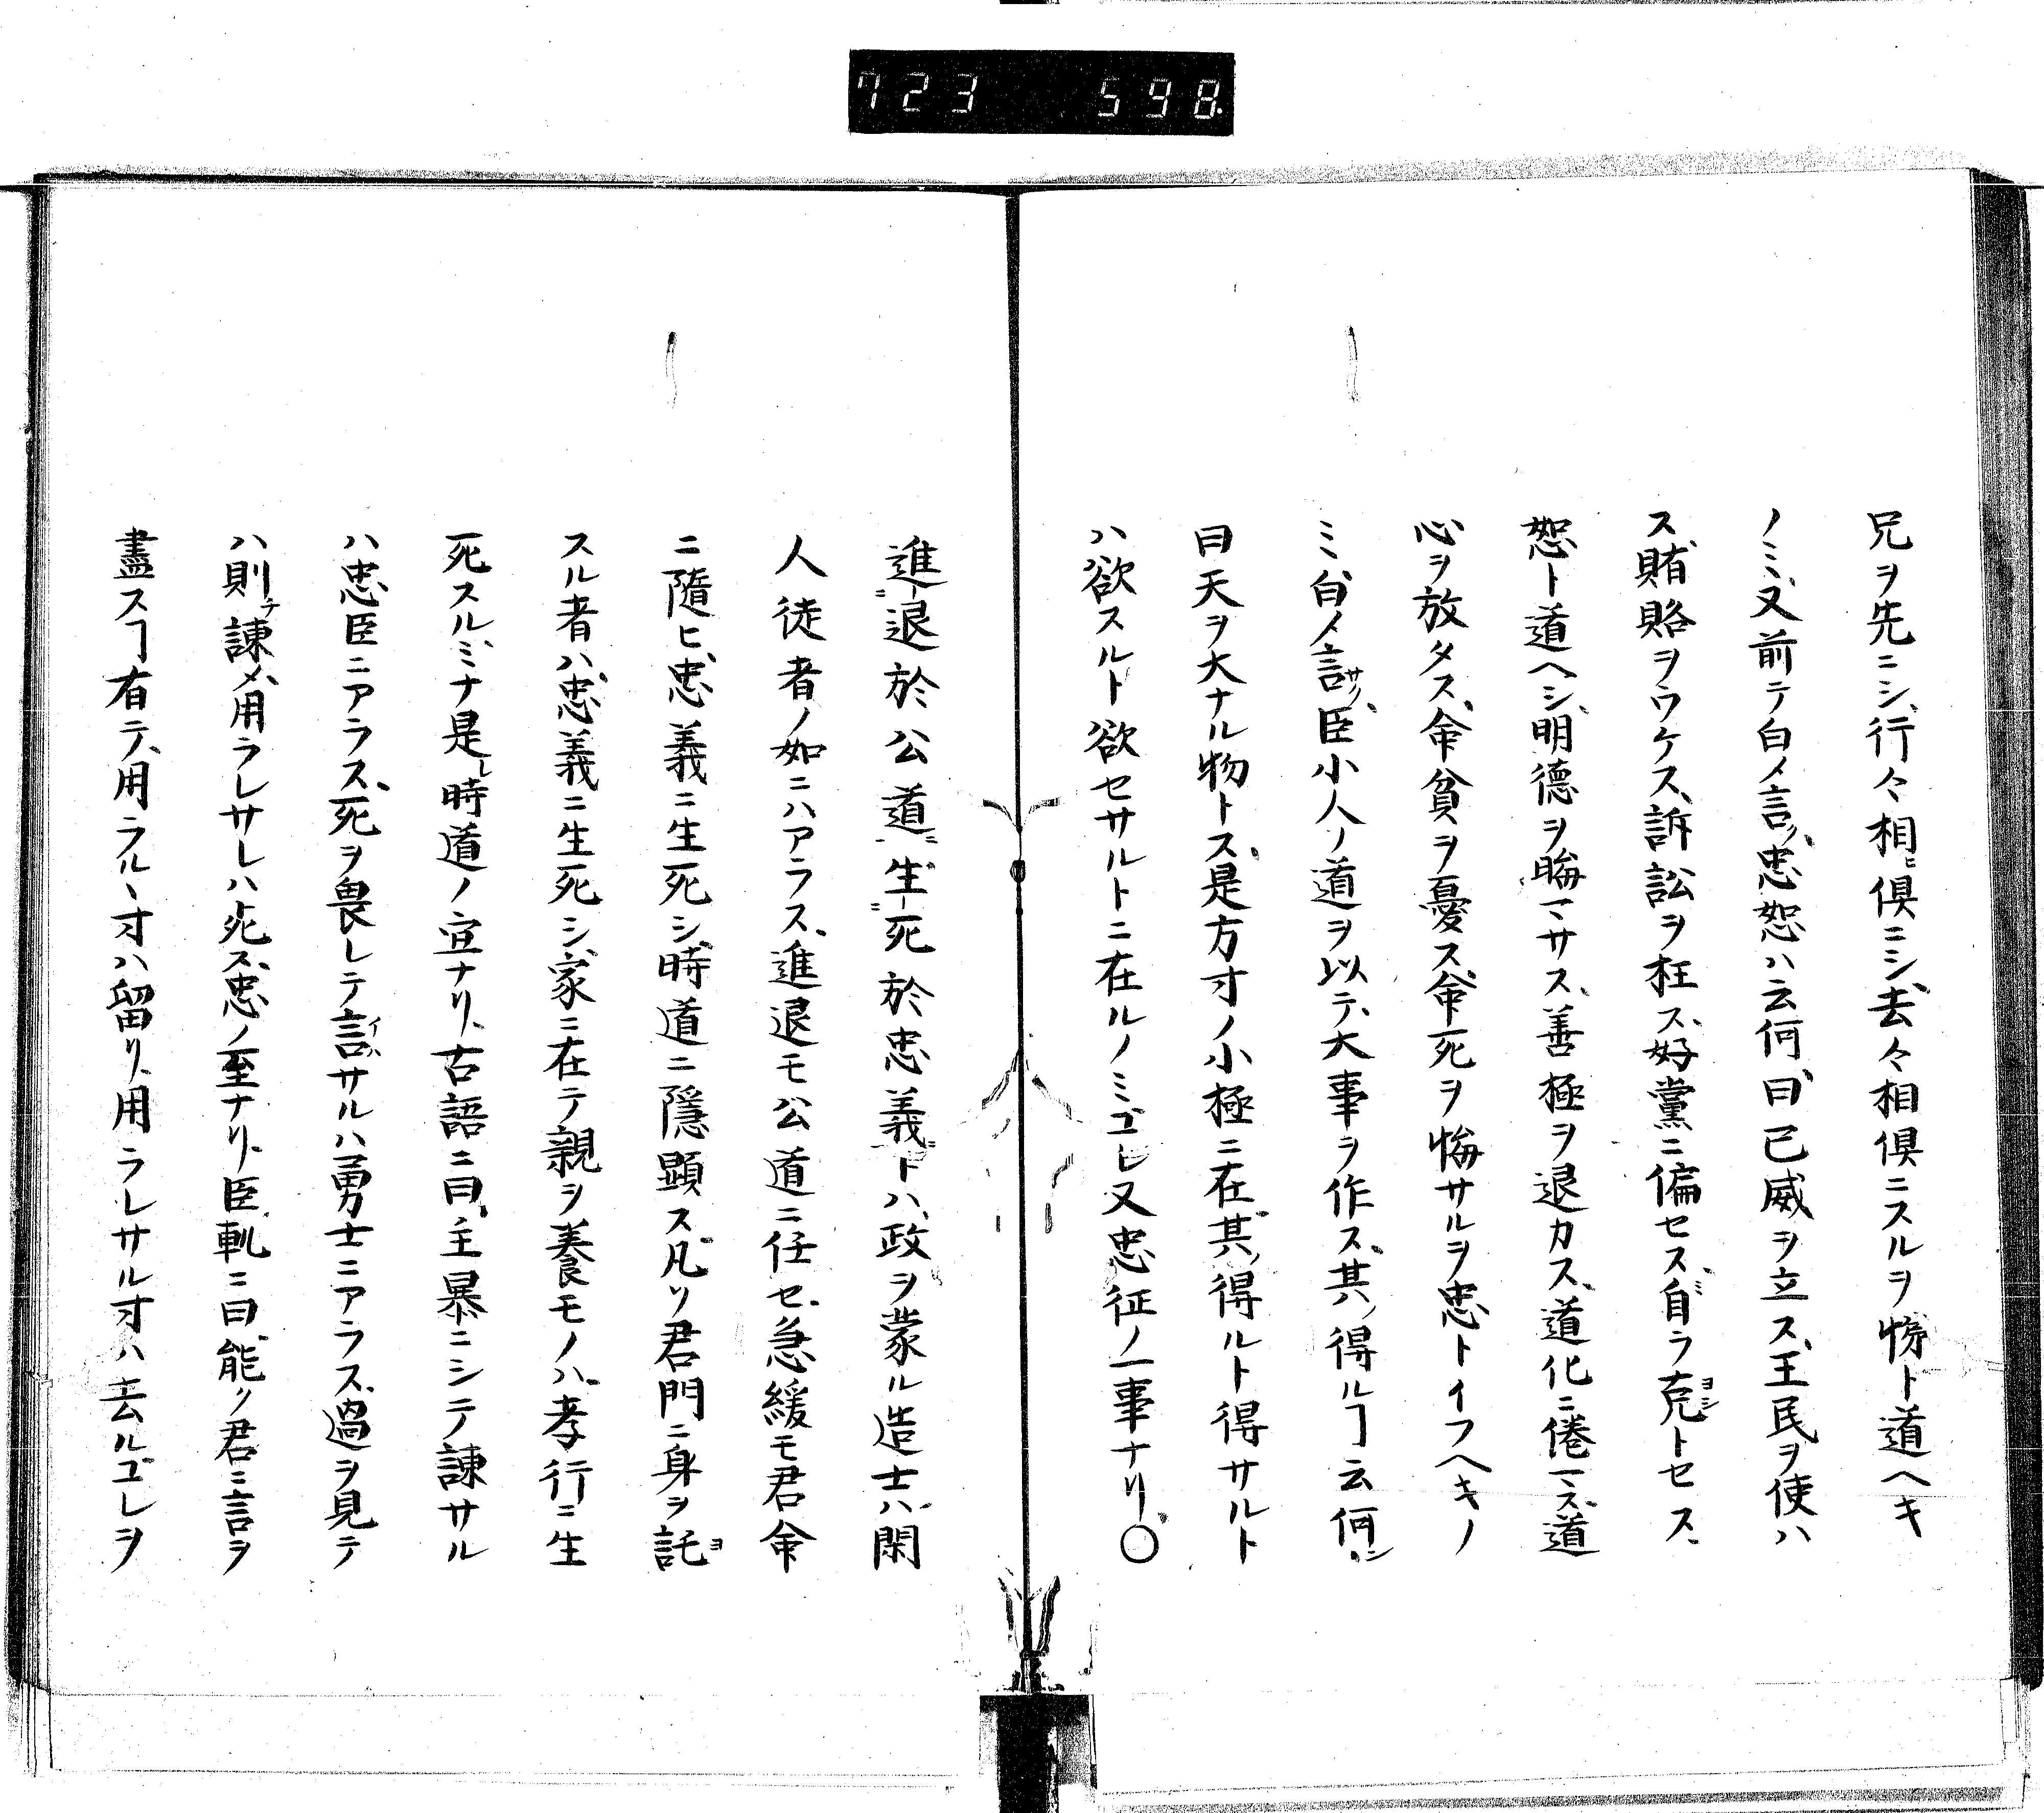 723 598
兄ヲ先ニシ、行々相ヒ倶ニシ、去々相倶ニスルヲ悌ト道ヘキ
ノミ、又前テ白メ言ク、忠恕ハ云何、曰己威ヲ立ス、王民ヲ使ハ
ス、賄賂ヲウケス、訴訟ヲ枉ス、好黨ニ偏セス、自ミラ克ヨシトセス、
恕ト道ヘシ、明德ヲ晦マサス、善極ヲ退カス、道化ニ倦マス、道
心ヲ放タス、命貧ヲ憂ス、命死ヲ悔サルヲ忠トイフヘキノ
ミ、白メ言サク、臣小人ノ道ヲ以テ、大事ヲ作ス、其ノ得ルヿ云何シ、
曰天ヲ大ナル物トス、是方寸ノ小極ニ在、其ノ得ルト得サルト
ハ欲スルト欲セサルトニ在ルノミ、コレ又忠征ノ一事ナリ、〇
進-退於公道ニ生-死於忠義ニトハ、政ヲ蒙ル造士ハ、閑
人徒者ノ如ニハアラス、進退モ公道ニ任セ、急緩モ君命
ニ隨ヒ、忠義ニ生死シ、時道ニ隱顯ス、凡ソ君門ニ身ヲ託ヨ
スル者ハ、忠義ニ生死シ、家ニ在テ親ヲ養モノハ、孝行ニ生
死スル、ミナ是レ時道ノ宜ナリ、古語ニ曰、主暴ニシテ諫サル
ハ忠臣ニアラス、死ヲ畏レテ言イハサルハ勇士ニアラス、過ヲ見テ
ハ則チ諫メ、用ラレサレハ死ス、忠ノ至ナリ、臣軌ニ曰、能ク君ミ言ヲ
盡スヿ有テ、用ラルヽ寸ハ留リ、用ラレサル寸ハ去ル、コレヲ